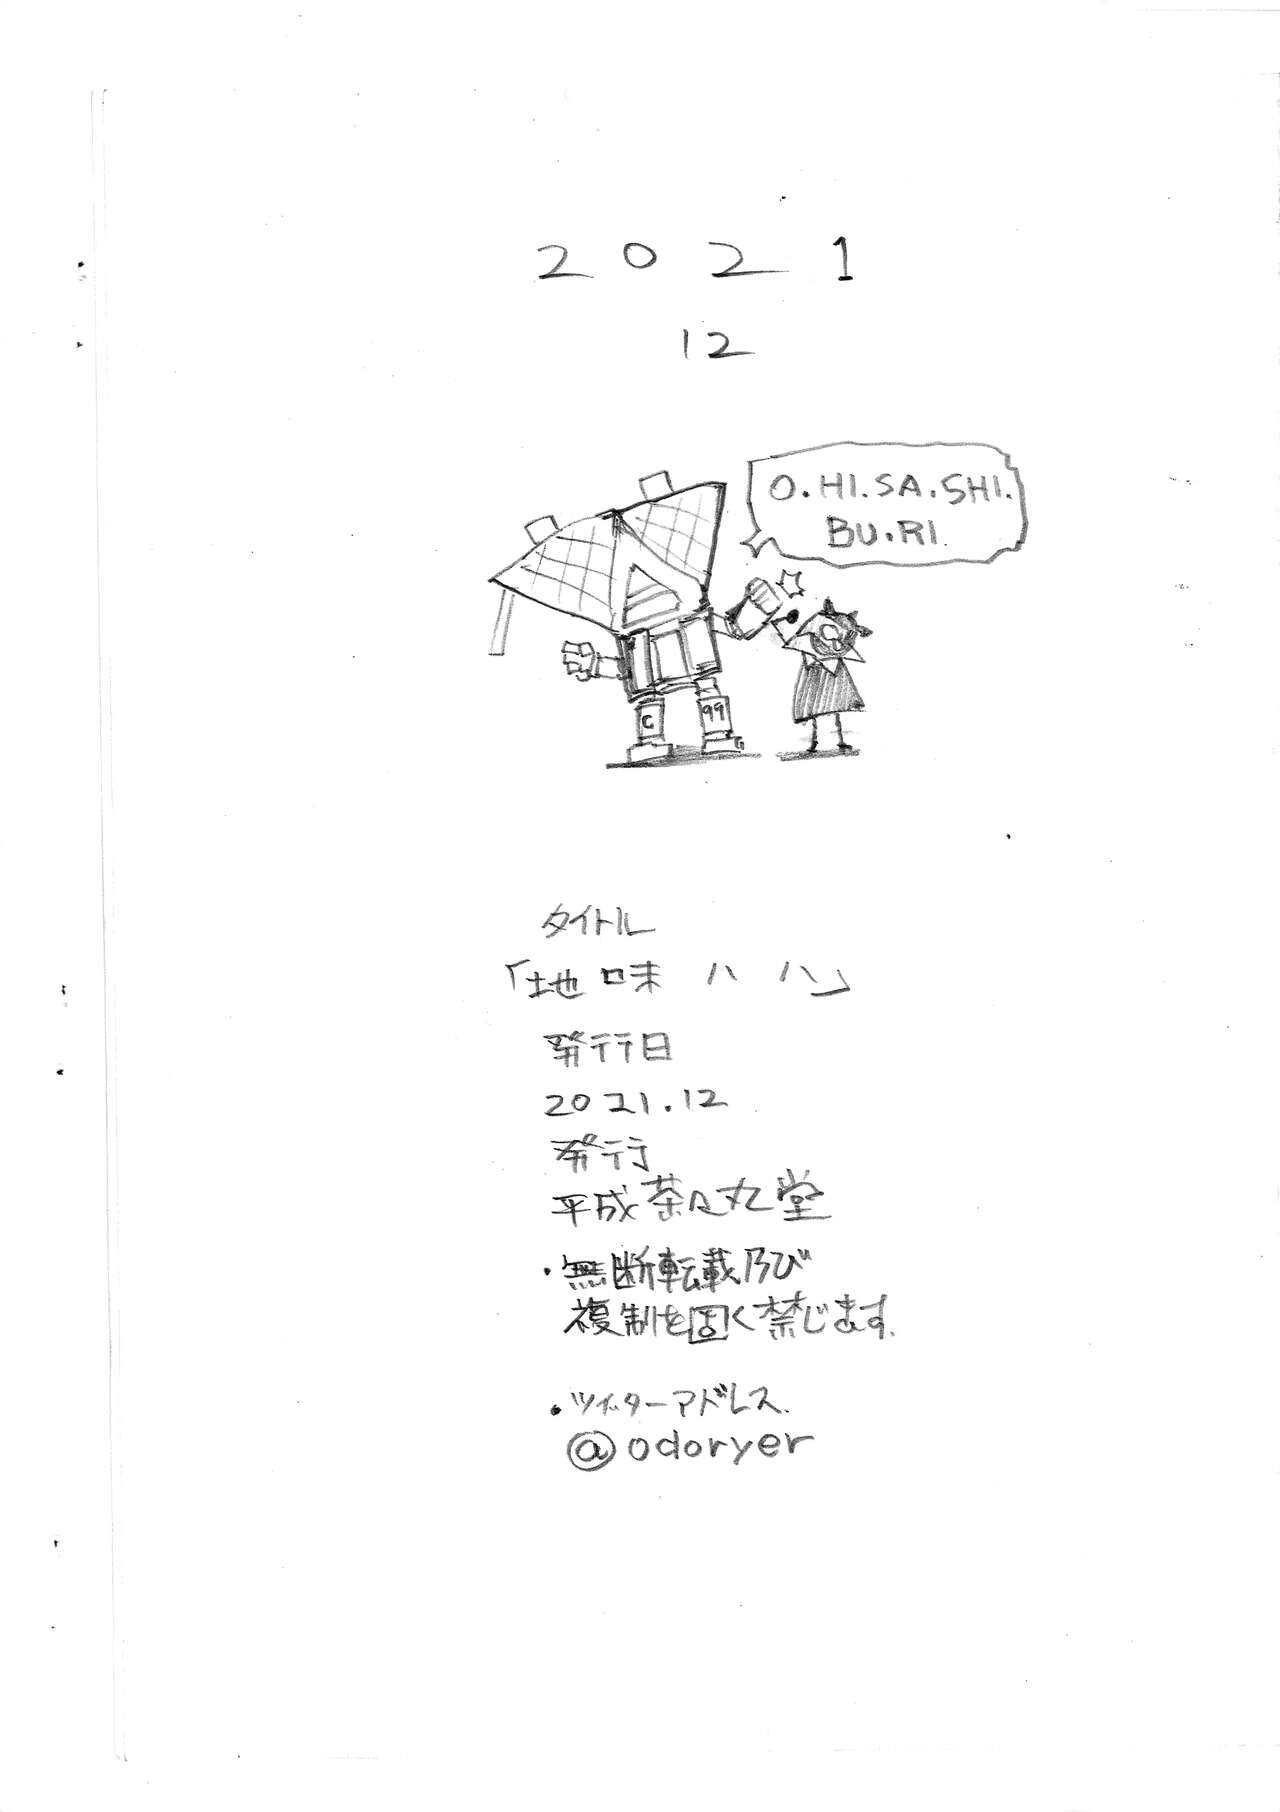 2021
12
O.HI.SA.SHI.
BU.RI.
C
99
タイトル
「地味ハハ」
発行日
2021.12
発行
平成茶々丸堂
・無断転載及び
複制を固く禁じます.
・ツイッターアドレス.
@odoryer